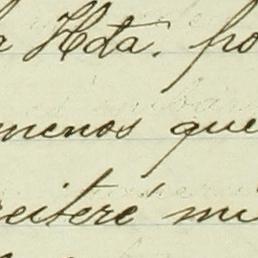 a Hda. po
menos que
reiteré mi